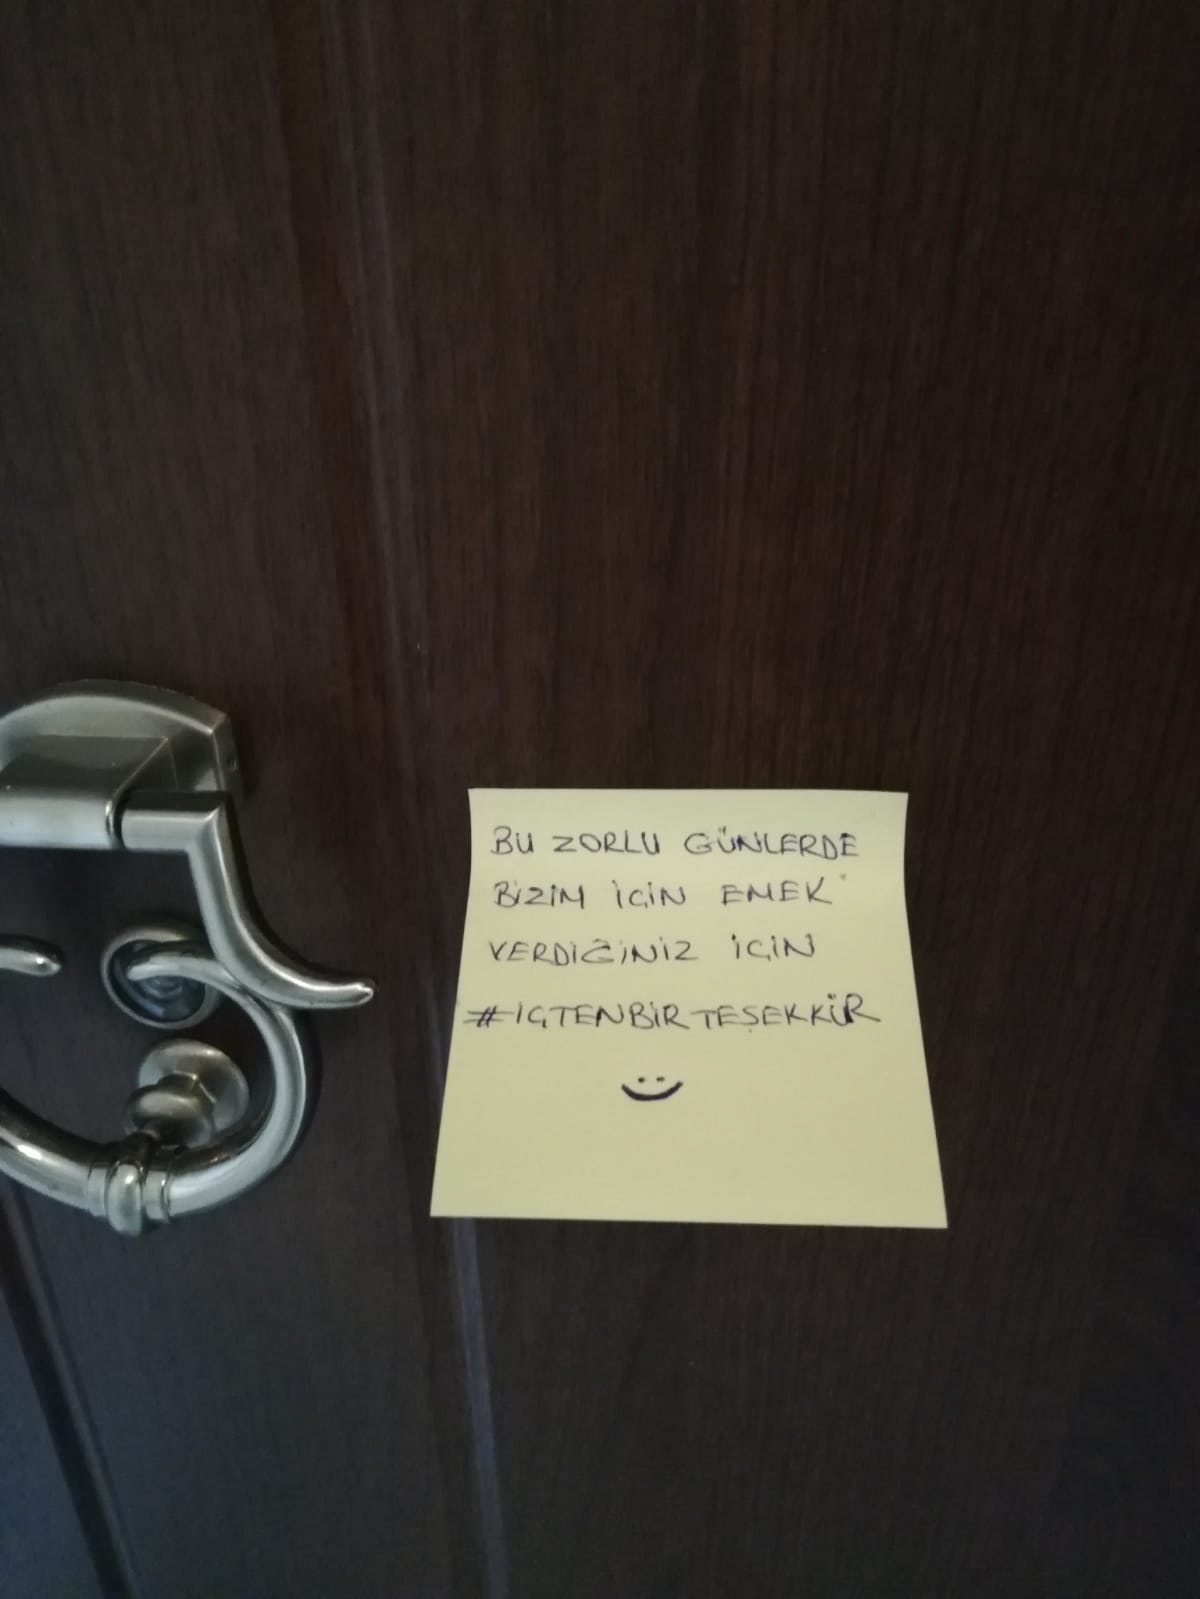 BU ZORLU GÜNLERDE
BİZİM İÇİN EMEK
VERDİĞİNİZ İÇİN
#İÇTENBİRTEŞEKKÜR